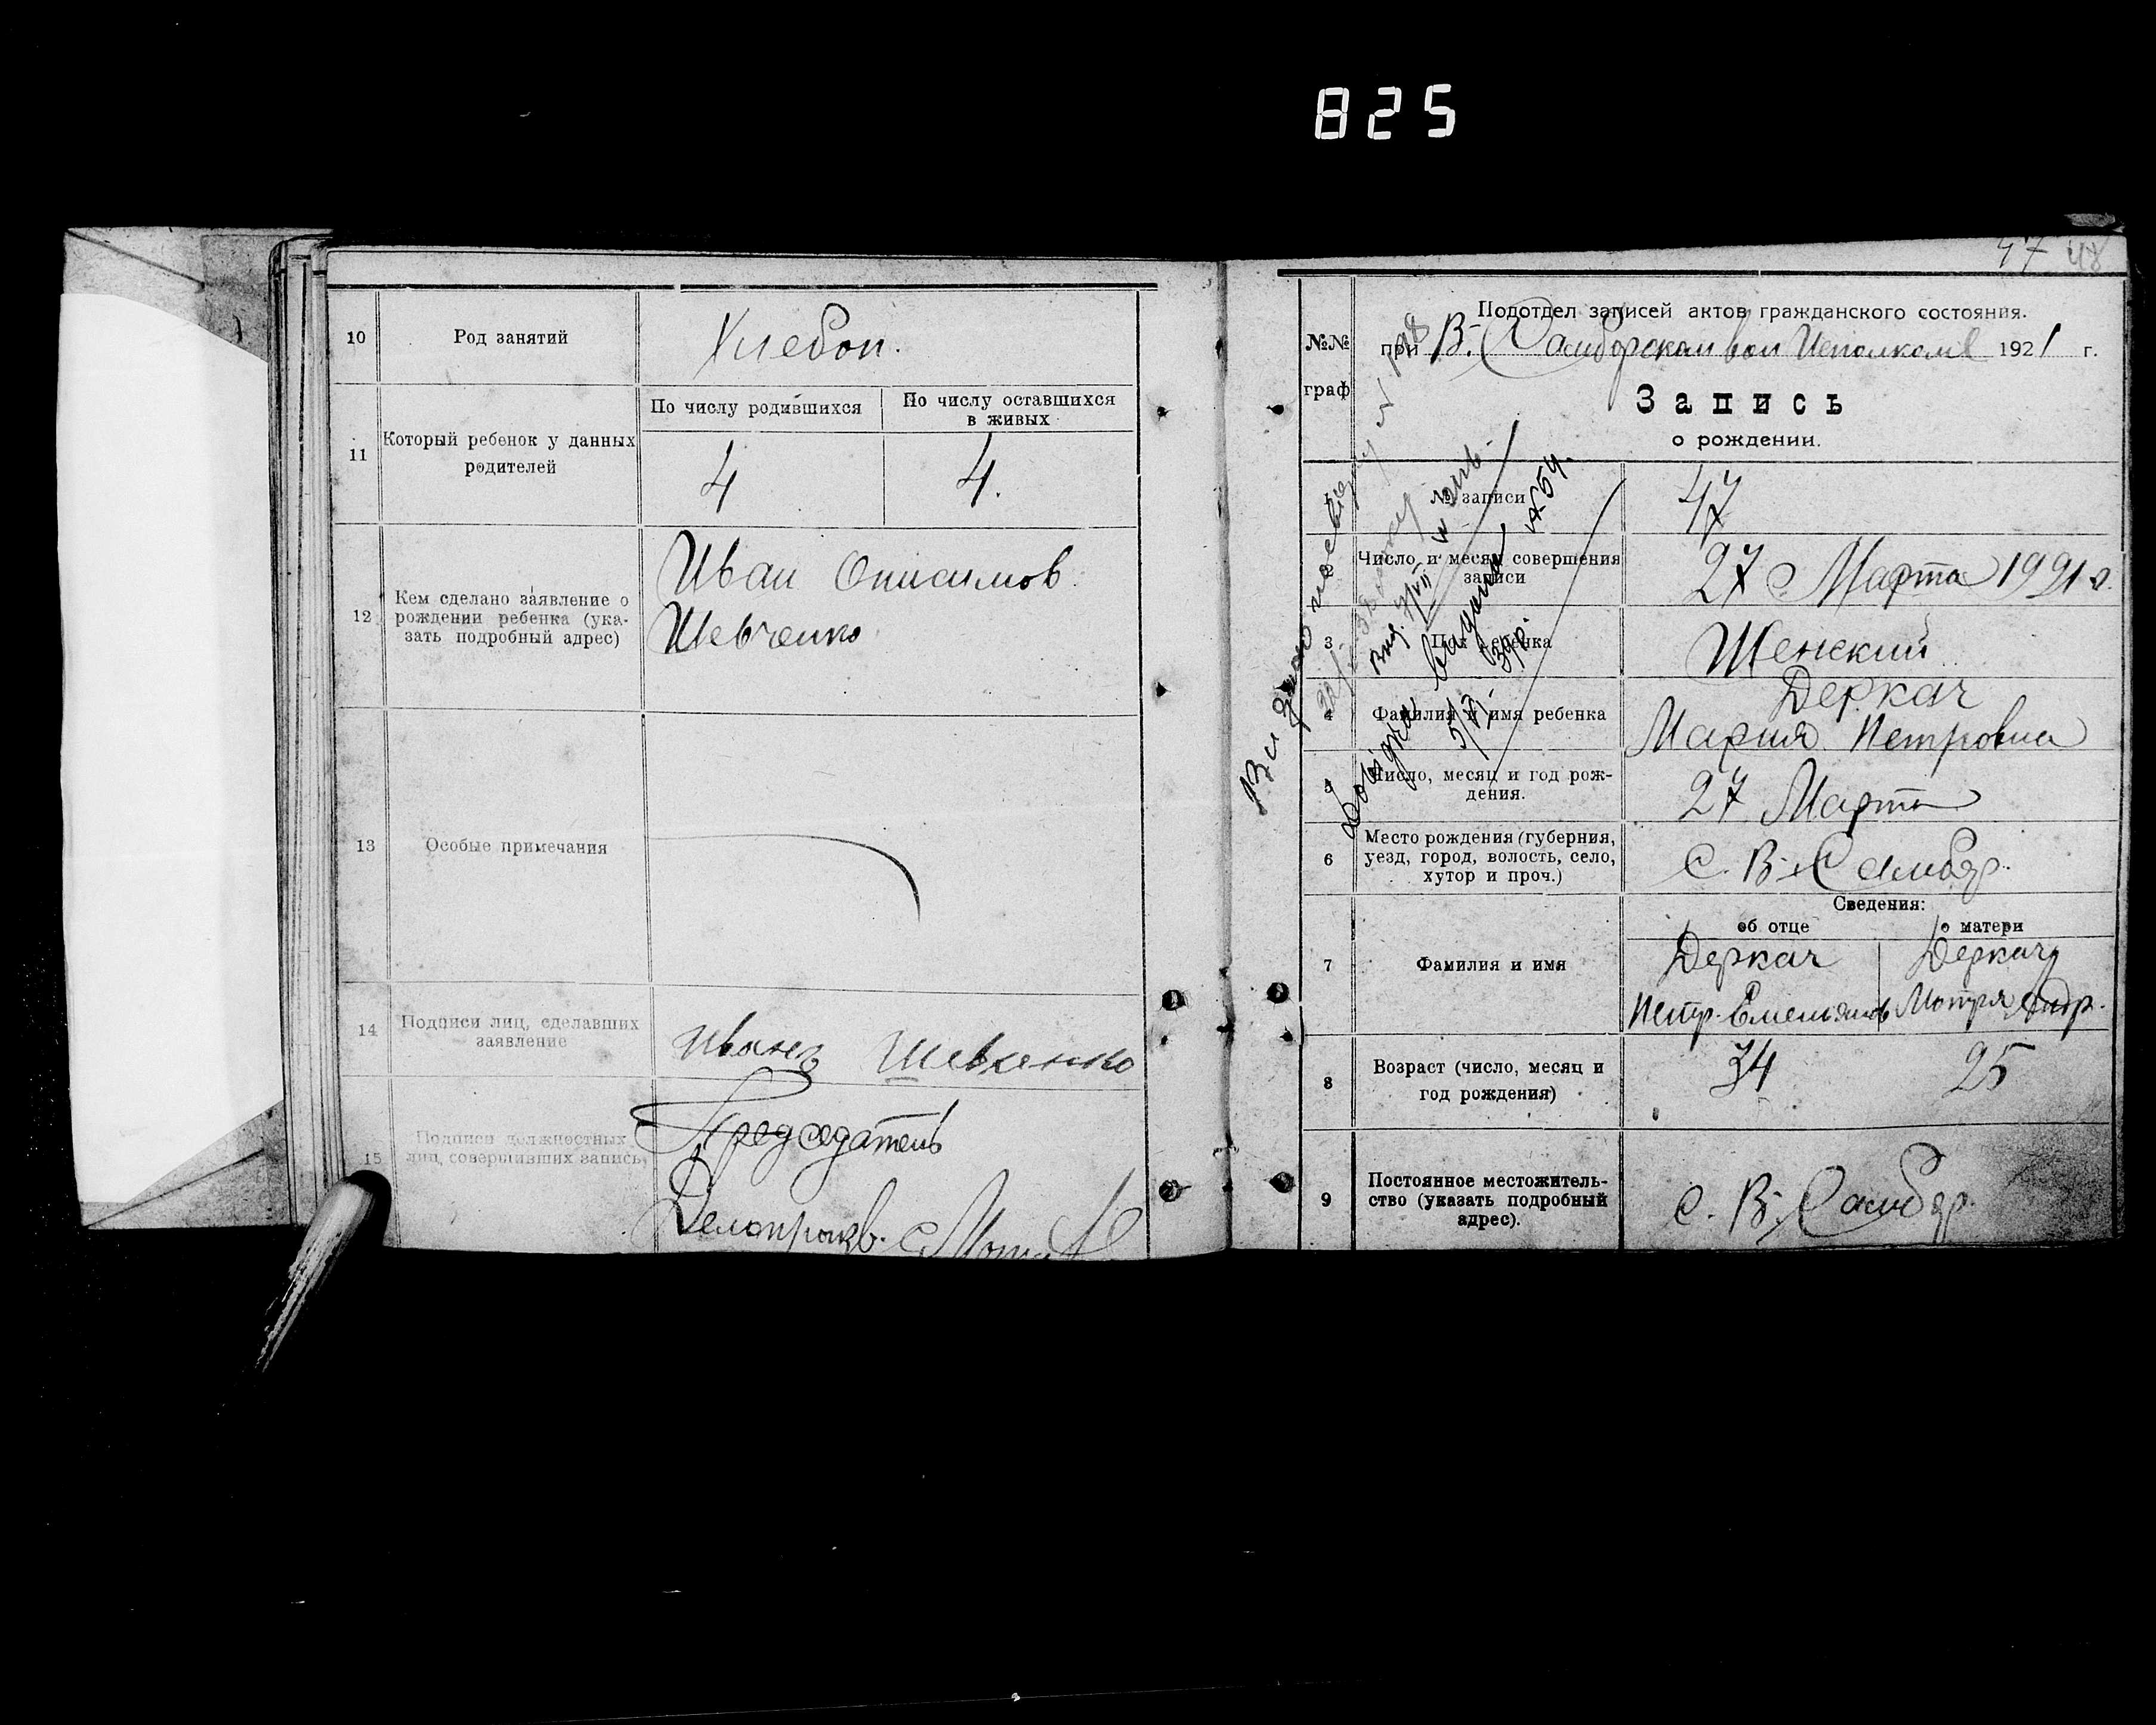 825
10
Род занятий
Хлебоп.
11
Который ребенок у данных
родителей
По числу родившихся
По числу оставшихся
в живых
4
4.
12
Кем сделано заявление о
рождении ребенка (ука-
зать подробный адрес)
Иван Онисимов
Шевченко
13
Особые примечания
14
Подписи лиц, сделавших
заявление
Иванъ Шевченко
15
Подписи должностных
лиц, совершивших запись
Председатель
Делопроизв.
47 48
№№
граф
Подотдел записей актов гражданского состояния.
при В.-Самборском вол Исполкоме 1921 г.
Запись
о рождении.
1
№ записи
47
2
Число и месяц совершения
записи
27 Марта 1921 г.
3
Пол ребенка
Женский
4
Фамилия и имя ребенка
Деркач
Мария Петровна
5
Число, месяц и год рож-
дения.
27 Марта
6
Место рождения (губерния,
уезд, город, волость, село,
хутор и проч.)
с. В-Самбор.
Сведения:
об отце
о матери
7
Фамилия и имя
Деркач
Петр. Емельянов
Деркач
Мотря Андр.
8
Возраст (число, месяц и
год рождения)
34
25
9
Постоянное местожитель-
ство (указать подробный
адрес).
с. В-Самбор.